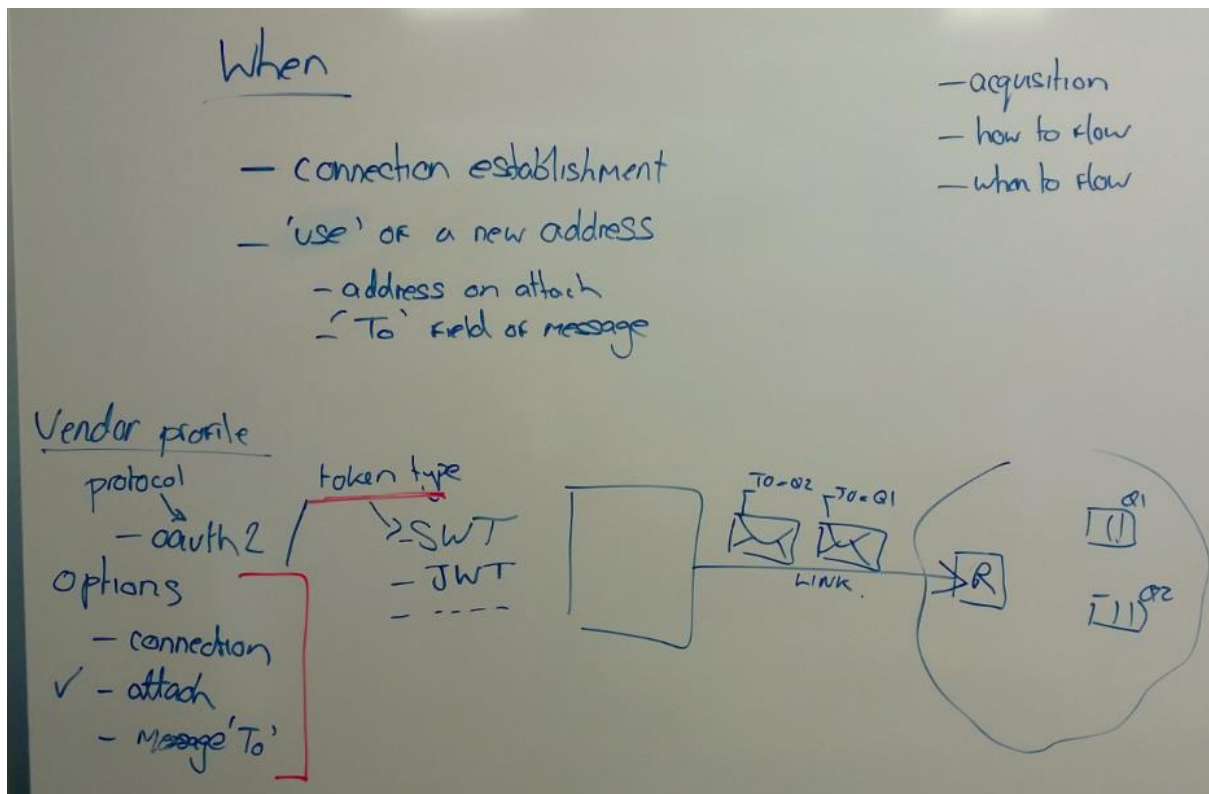 When
- connection establishment
- 'use' of a new address
- address on attach
- 'To' field of message
- acquisition
- how to flow
- when to flow
Vendor profile
protocol
- oauth2
Options
- connection
✓ - attach
- Message 'To'
token type
- SWT
- JWT
- ----
TO=Q2
TO=Q1
LINK.
R
Q1
Q2